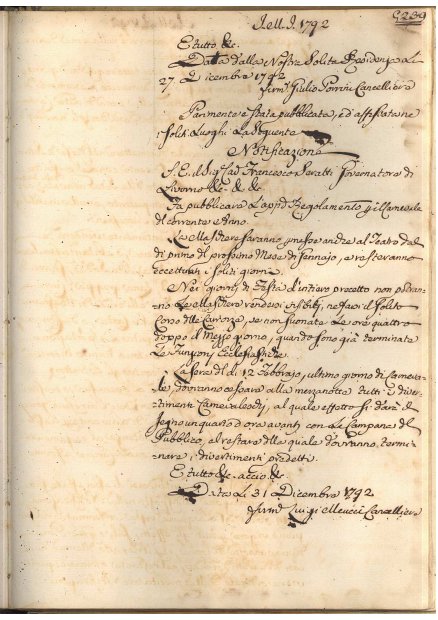 1792
E tutto &c.
Data dalla Nostra Solita Residenza Li
27. Dicembre 1792
Giulio Porrini Cancelliere
Parimente è stata pubblicata, ed affissata ne
i soliti Luoghi La Seguente
Notificazione
S. E. il Sig. Francesco Seratti Governatore di
Livorno &c. &c. &c.
Fa pubblicare Regolamento Carnevale
Le Maschere faranno andare al Teatro dal
dì primo di prossimo Mese di Gennajo, e resteranno
eccettuati i soliti giorni
Nei giorni di Festa d'intiero precetto non potran=
=no Le Maschere rendersi visibili, ne farsi il Solito
Corso delle Carrozze, se non suonate Le ore quattro
doppo il Mezzo giorno, quando sono già terminate
Le Funzioni Ecclesiastiche.
La sera del dì 12 Febbrajo, ultimo giorno di Carneva=
=le, dovranno cessare alla mezzanotte tutti i diver=
=timenti Carnevaleschi, al quale effetto si darà il
segno un quarto d'ora avanti con La Campana del
Pubblico, al restare della quale dovranno termi=
=nare i divertimenti predetti.
E tutto &c. acciò &c.
Data Li 31 Dicembre 1792
Luigi Meucci Cancelliere